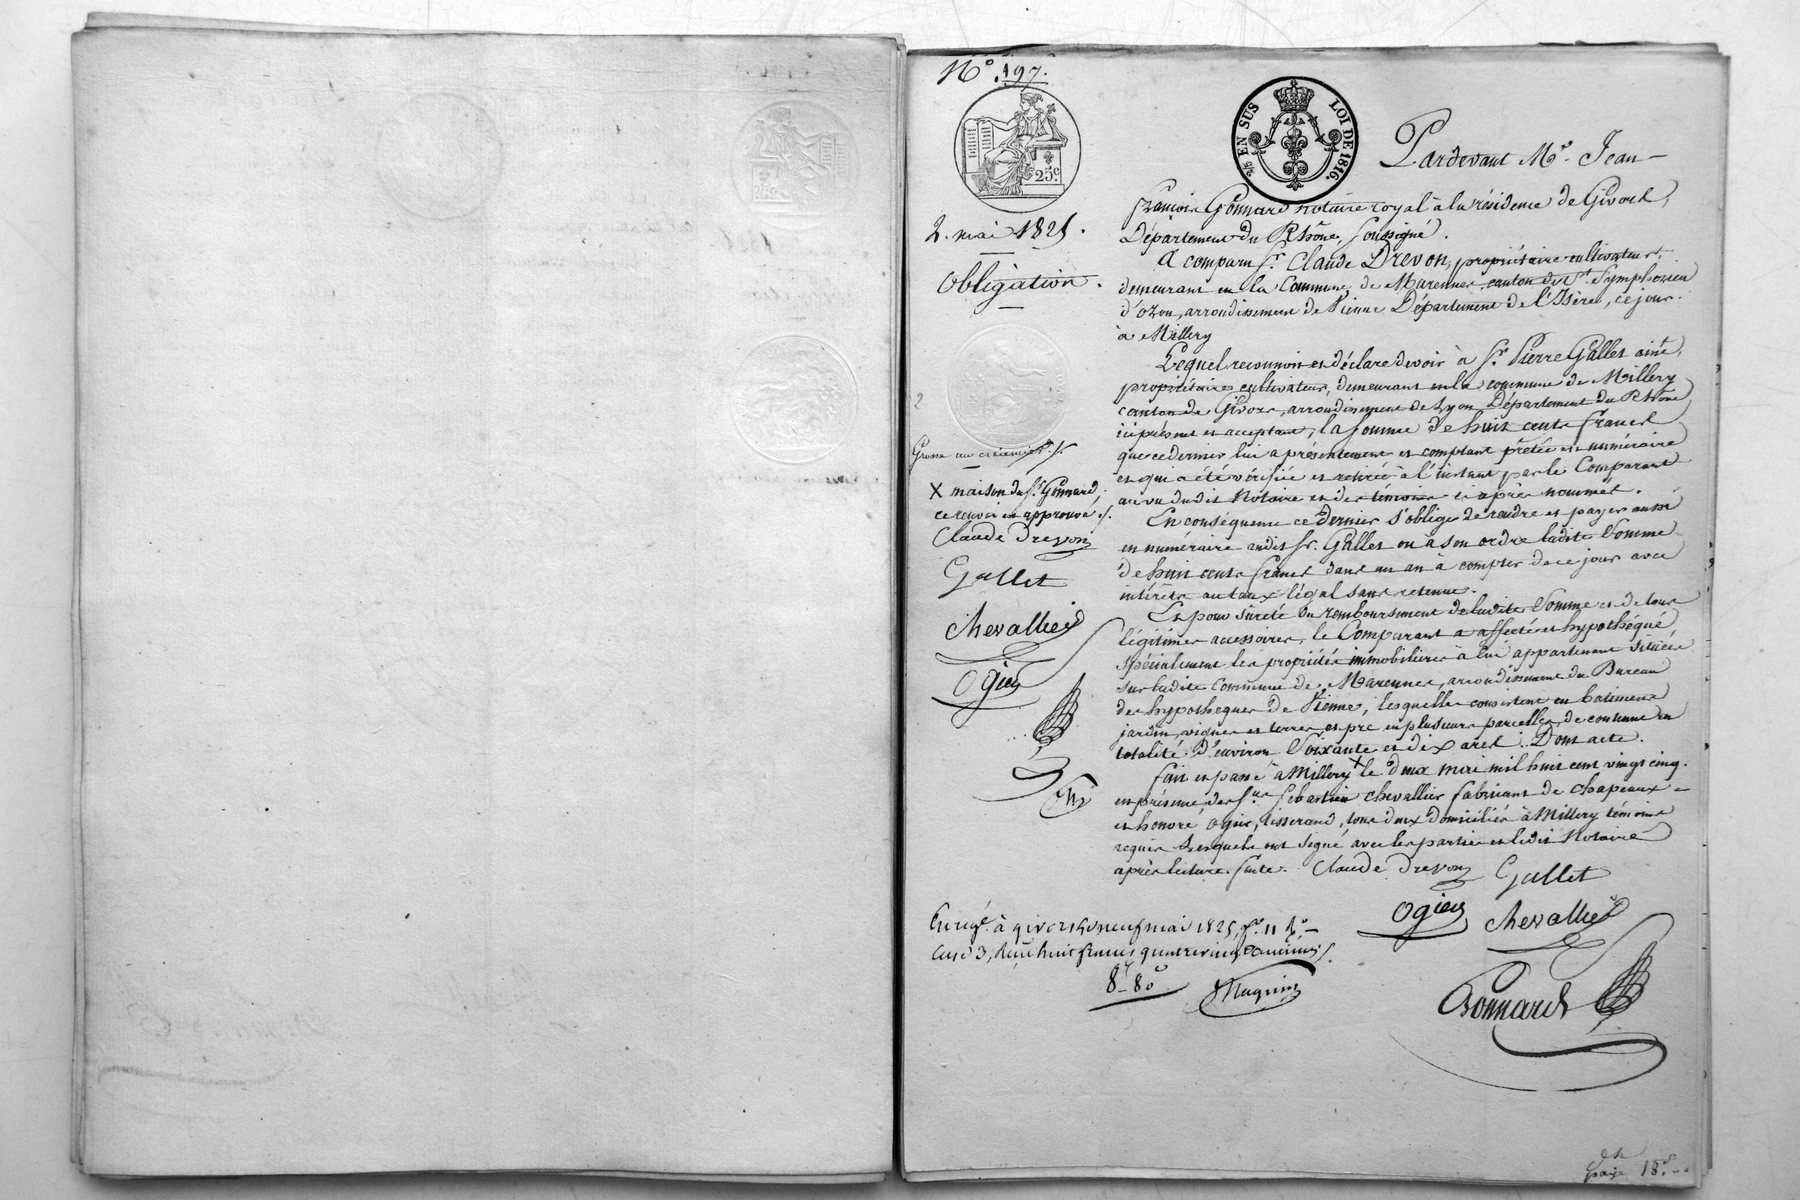 N.° 197.
25c
2/10 EN SUS LOI DE 1816.
2. mai 1825.
Obligation.
Pardevant Me. Jean-
françois Gonnard notaire royal à la résidence de Givors,
Département du Rhône, soussigné.
A comparu Sr. Claude Drevon, propriétaire cultivateur,
demeurant en la Commune de Marennes, canton de St. Symphorien
d'ozon, arrondissement de Vienne Département de l'Isère, ce jour
à Millery
Lequel reconnoit et déclare devoir à Sr. Pierre Gallet ainé,
propriétaire cultivateur, demeurant en la commune de Millery
canton de Givors, arrondissement de Lyon Département du Rhône
ici présent et acceptant, la somme de huit cents francs
que ce dernier lui a présentement et comptant prêtée en numéraire
et qui a été vérifiée et retirée à l'instant par le Comparant
au vu dudit Notaire et des témoins ci après nommés.
En conséquence ce dernier s'oblige de rendre et payer aussi
en numéraire audit Sr. Gallet ou à son ordre ladite Somme
de huit cents francs dans un an à compter de ce jour avec
intérêts au taux légal sans retenue.
Et pour sûreté du remboursement de ladite Somme et de tous
légitimes accessoires, le Comparant a affecté et hypothéqué
spécialement les propriétés immobilières à lui appartenant situées
sur ladite Commune de Marennes, arrondissement du Bureau
des hypothèques de Vienne, lesquelles consistent en batiments
jardin, vignes et terres et pré en plusieurs parcelles, de contenue en
totalité d'environ Soixante et dix ares. Dont acte.
fait et passé à Millery x le deux mai mil huit cent vingt cinq.
en présence des Srs. Sebastien chevallier fabricant de chapeaux
et honoré ogier, tisserand, tous deux domiciliés à Millery témoins
requis lesquels ont signé avec les parties et ledit Notaire
après lecture faite. Claude Drevon Gallet
Ogier Chevallier
Gonnard
X maison du Sr. Gonnard,
ce renvoi en approuvé
Claude Drevon
Gallet
Chevallier
Ogier
Enregé. à givors le neuf mai 1825, fo. 11 Ro.
case 3, Reçu huit francs quatrevingt centimes
8f 80
Magnin